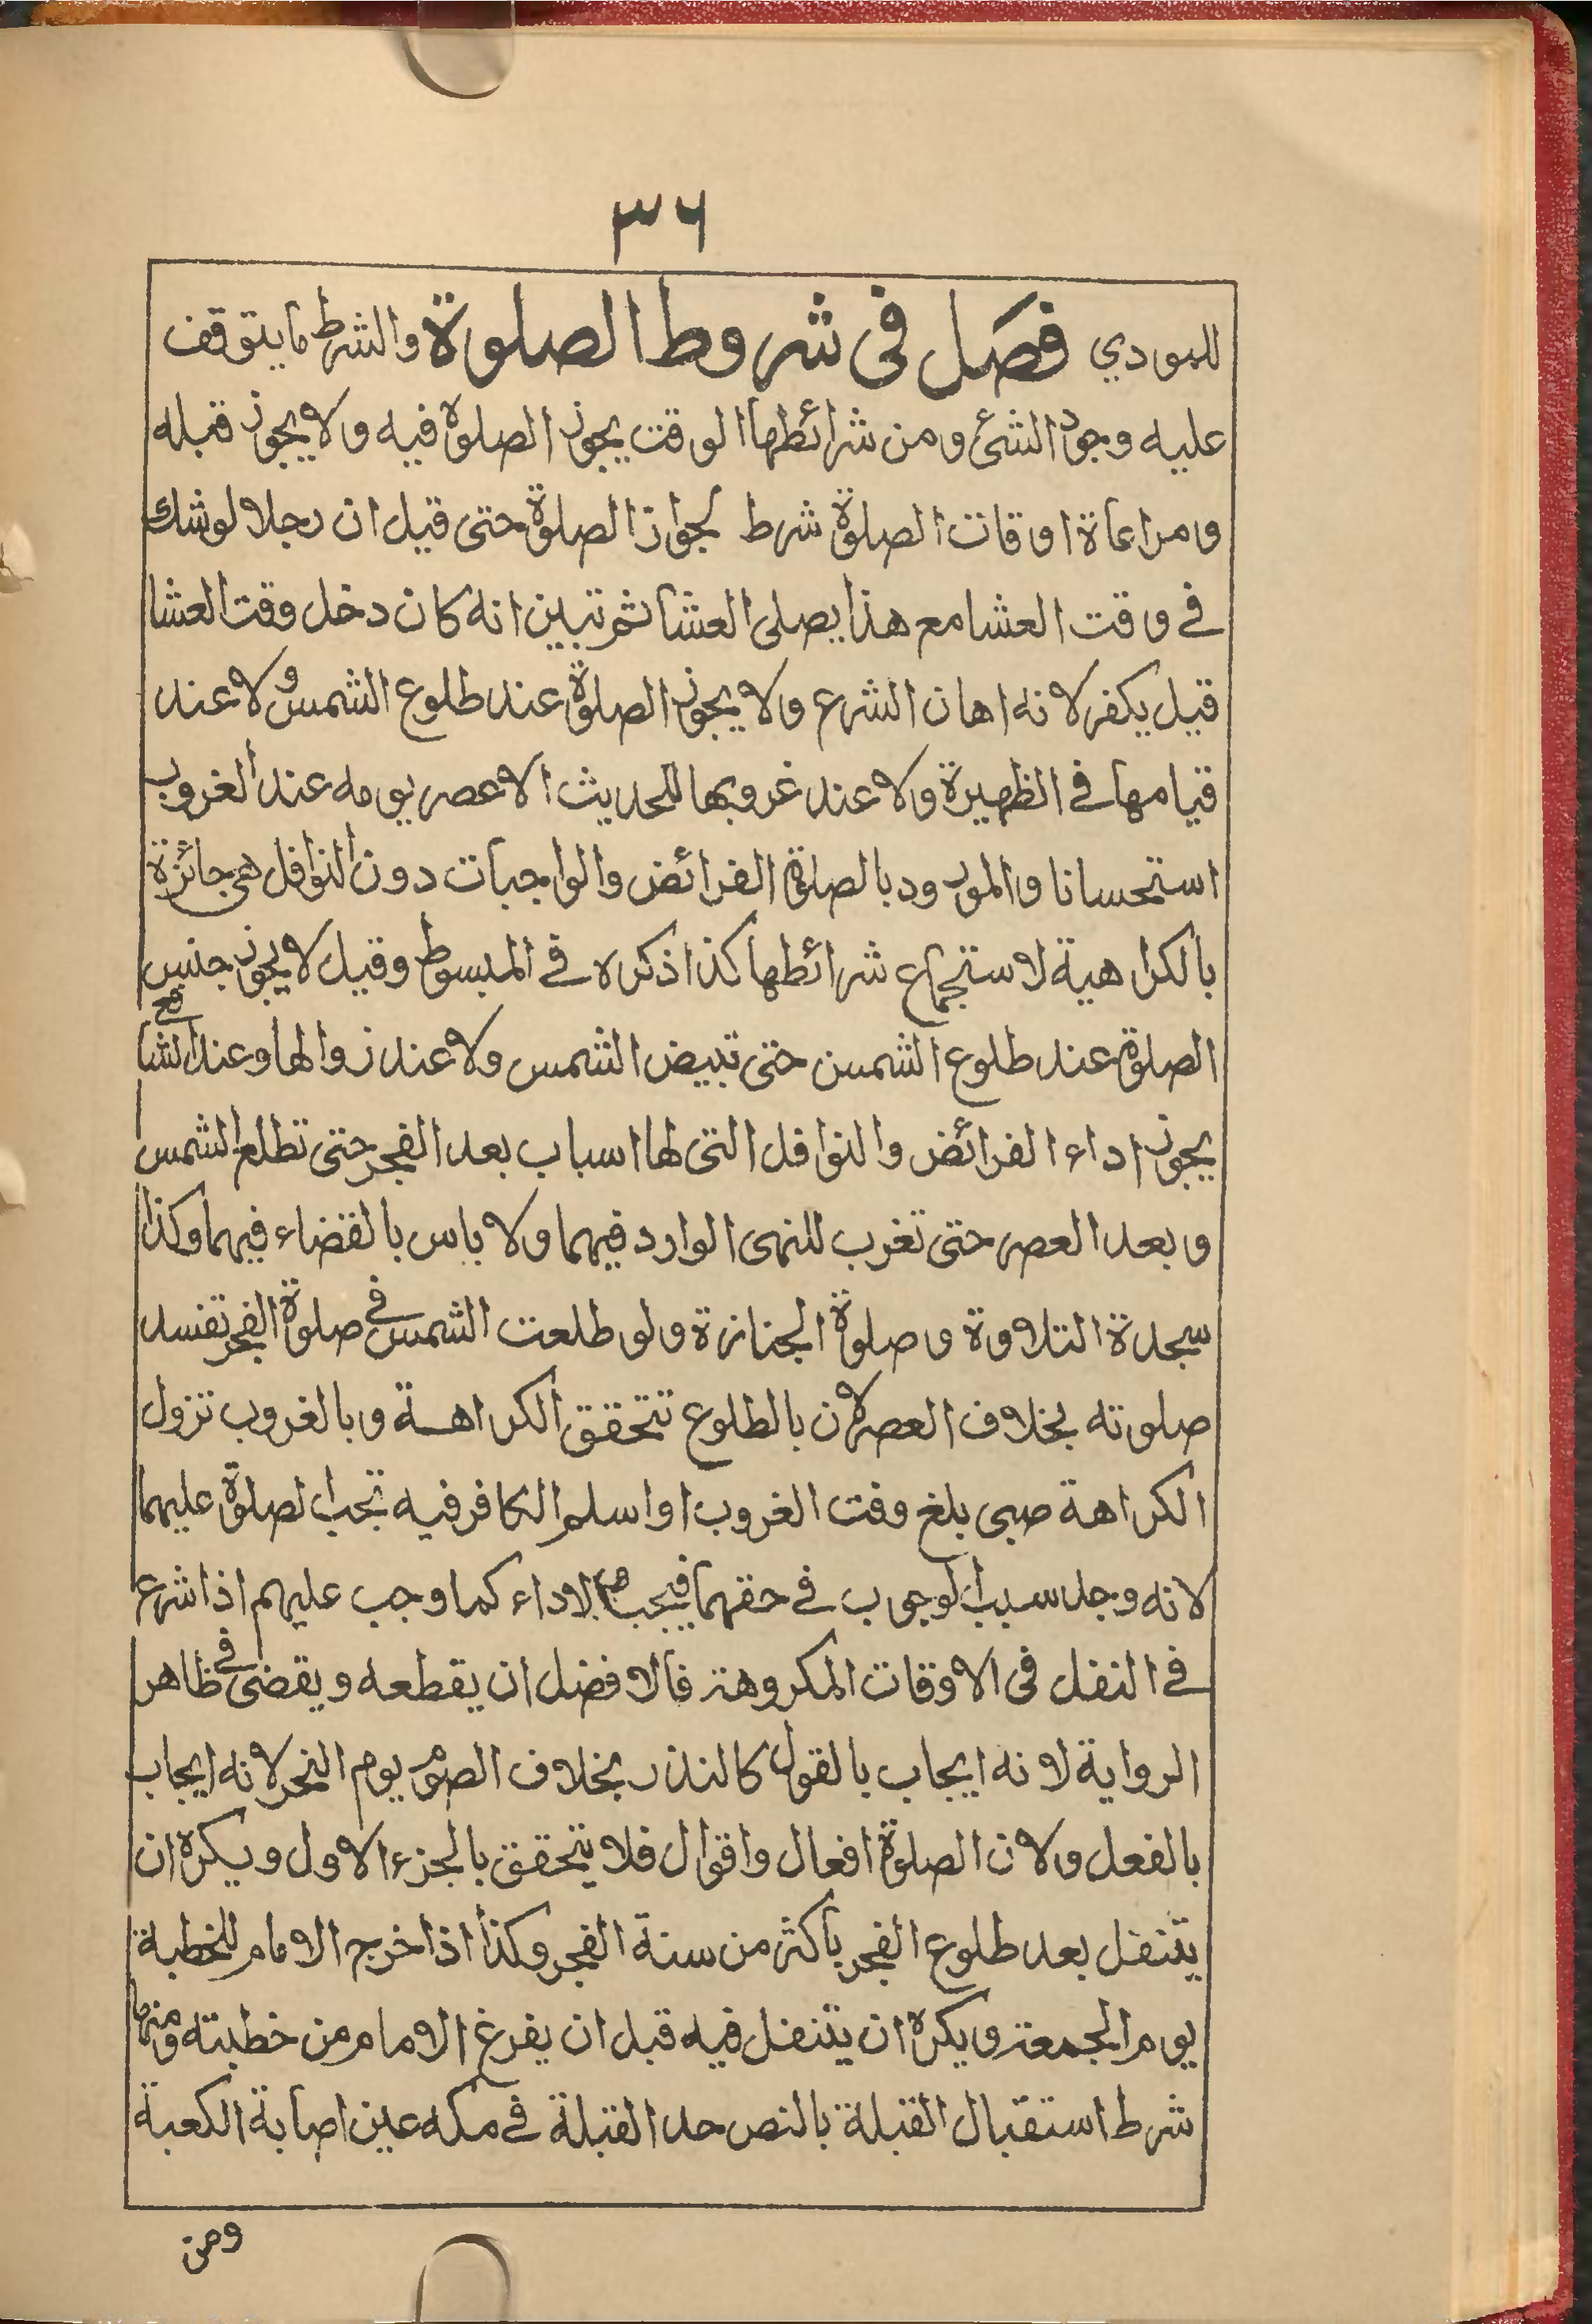 ٣٦
للبودي فصل في شروط الصلوة والشرط ما يتوقف
عليه وجود الشئ ومن شرائطها الوقت يجوز الصلوة فيه ولا يجوز قبله
ومراعاة اوقات الصلوة شرط لجواز الصلوة حتى قيل ان رجلا لو شك
في وقت العشا مع هذا يصلى العشا ثم تبين انه كان دخل وقت العشا
قيل يكفر لانه اهان الشرع ولا يجوز الصلوة عند طلوع الشمس ولا عند
قيامها في الظهيرة ولا عند غروبها للحديث الا عصر يومه عند الغروب
استحسانا والمورود بالصلوة الفرائض والواجبات دون النوافل هي جائزة
بالكراهية لاستجماع شرائطها كذا ذكره في المبسوط وقيل لا يجوز جنس
الصلوة عند طلوع الشمس حتى تبيض الشمس ولا عند زوالها وعند الشافع
يجوز اداء الفرائض والنوافل التى لها اسباب بعد الفجر حتى تطلع الشمس
وبعد العصر حتى تغرب للنهى الوارد فيهما ولا باس بالقضاء فيهما وكذا
سجدة التلاوة وصلوة الجنازة ولو طلعت الشمس في صلوة الفجر تفسد
صلوته بخلاف العصر لان بالطلوع تتحقق الكراهة وبالغروب تزول
الكراهة صبى بلغ وقت الغروب او اسلم الكافر فيه تجب الصلوة عليهما
لانه وجد سبب الوجوب في حقهما فيجب الاداء كما وجب عليهم اذا شرع
في النفل فى الاوقات المكروهة فالافضل ان يقطعه ويقضى في ظاهر
الرواية لانه ايجاب بالقول كالنذر بخلاف الصوم يوم النحر لانه ايجاب
بالفعل ولان الصلوة افعال واقوال فلا يتحقق بالجزء الاول ويكره ان
يتنفل بعد طلوع الفجر باكثر من سنة الفجر وكذا اذا خرج الامام للخطبة
يوم الجمعة ويكره ان يتنفل فيه قبل ان يفرغ الامام من خطبته ومنها
شرط استقبال القبلة بالنص حد القبلة في مكه عين اصابة الكعبة
ومن